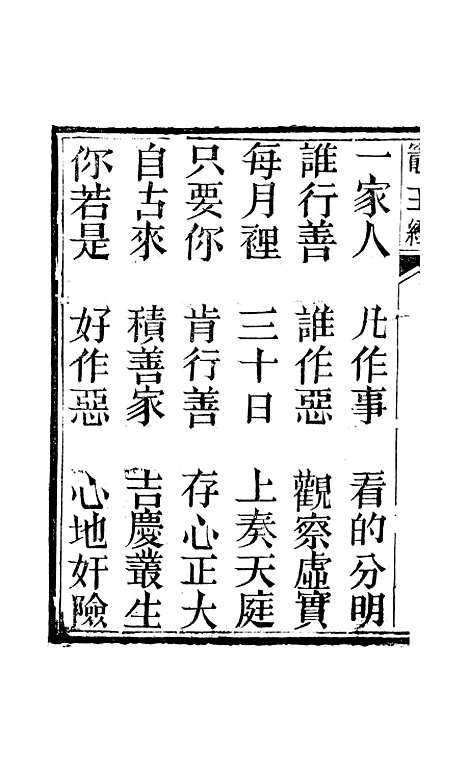 竈王經
一家人 凡作事 看的分明
誰行善 誰作惡 觀察虛實
每月裡 三十日 上奏天庭
只要你 肯行善 存心正大
自古來 積善家 吉慶叢生
你若是 好作惡 心地奸險